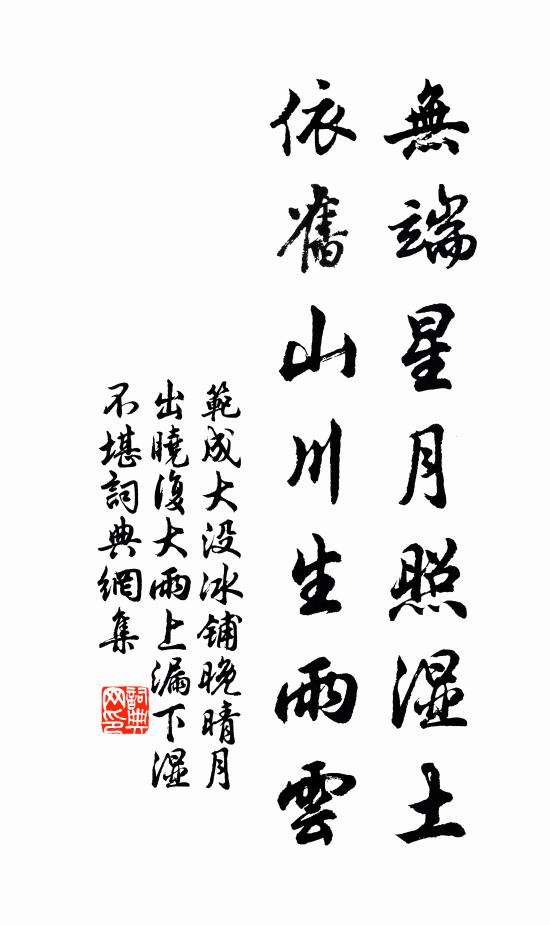 無端星月照湿土
依舊山川生雨雲
範成大没冰鋪晚晴月
出曉復大雨上漏下湿
不堪詞典網集
詞典网印